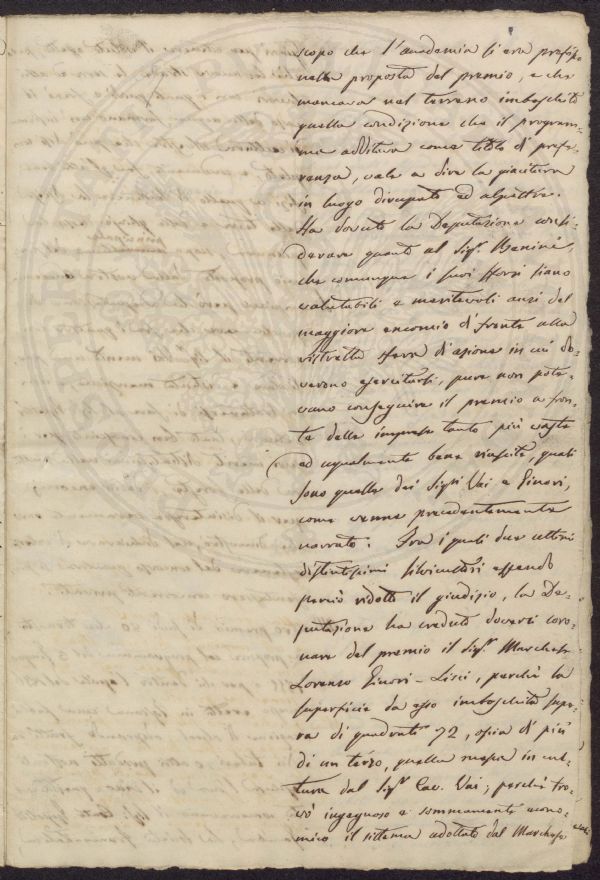 scopo che l'accademia si era prefisso
nella proposta del premio, e che
mancava nel terreno imboschito
quella condizione che il program-
ma additava come titolo di prefe-
renza, vale a dire la giacitura
in luogo dirupato ed alpestre.
Ha dovuto la Deputazione consi-
derare quanto al Sigr. Benini,
che comunque i suoi sforzi siano
valutabili e meritevoli anzi del
maggiore encomio di fronte alla
ristretta sfera d'azione in cui do-
verono esercitarsi, pure non pote-
vano conseguire il premio a fron-
te delle imprese tanto più vaste
ed ugualmente bene riuscite, quali
sono quelle dei Sigri Vai e Ginori,
come venne precedentemente
narrato. Fra i quali due ultimi
distintissimi silvicultori essendo
perciò ridotto il giudizio, la De-
putazione ha creduto doversi coro-
nare del premio il Sigr. Marchese
Lorenzo Ginori-Lisci, perchè la
superficie da esso imboschita supe-
ra di quadrati 72, ossia di più
di un terzo, quella messa in cul-
tura dal Sigr. Cav. Vai; perchè tro-
vò ingegnoso e sommamente econo-
mico il sistema adottato dal Marchese